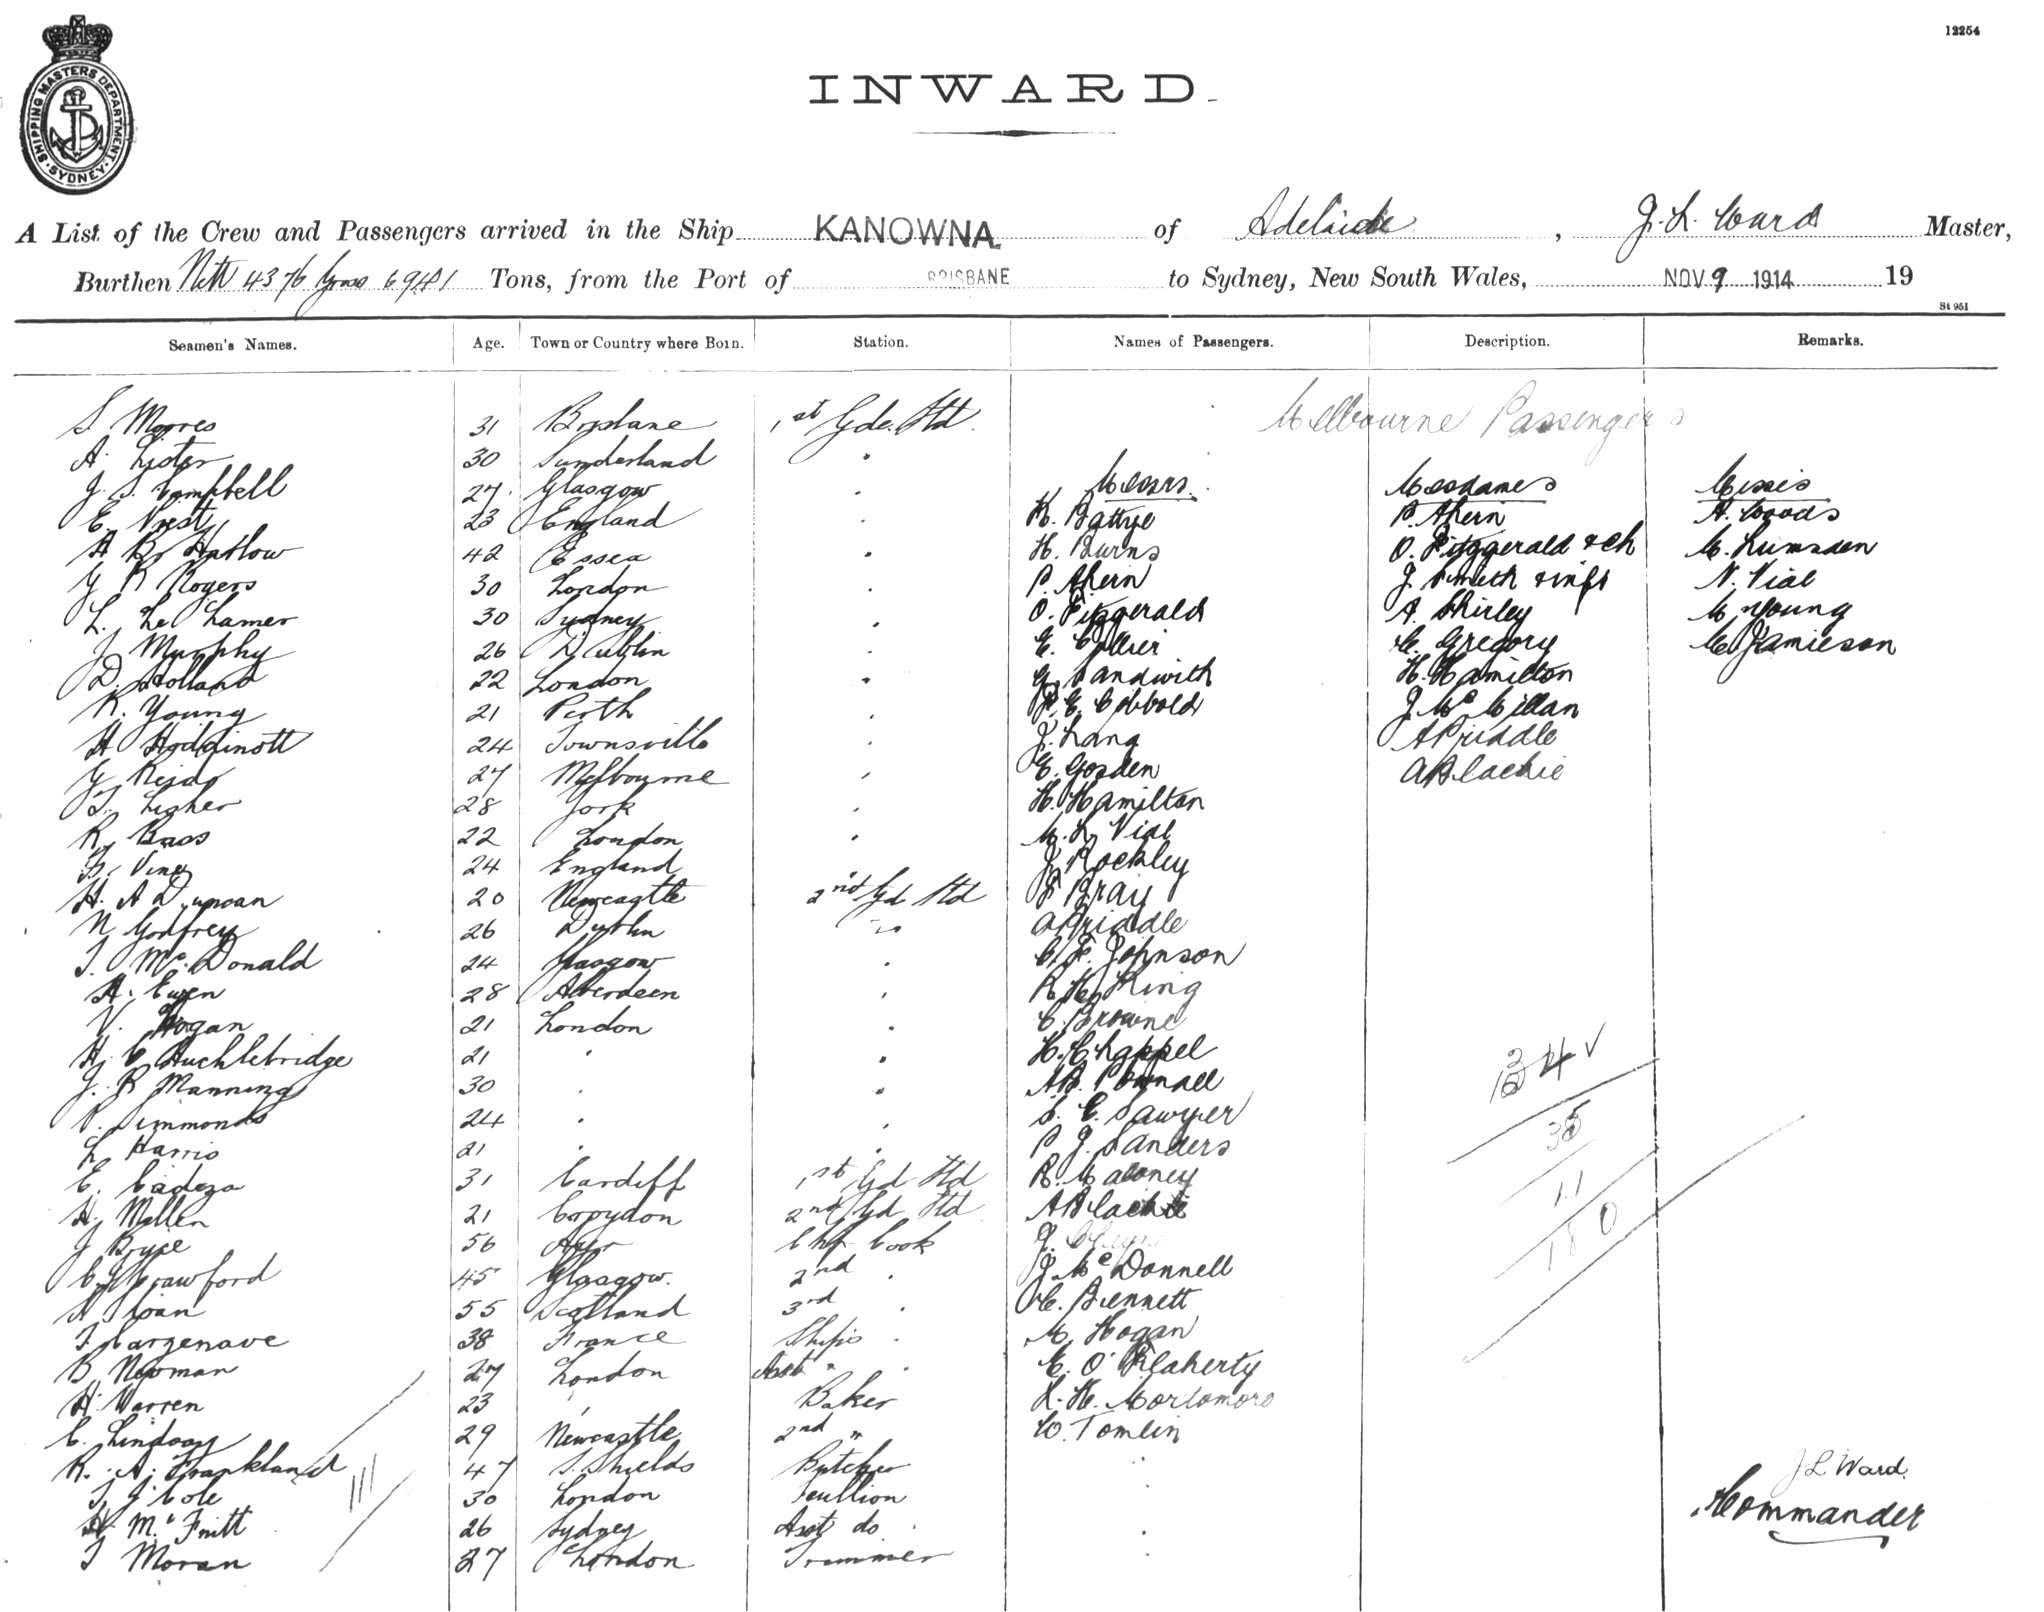 12254
SHIPPING MASTERS DEPARTMENT
SYDNEY
INWARD
A List of the Crew and Passengers arrived in the Ship KANOWNA of Adelaide, J. L. Ward Master,
Burthen Nett 4376 Gross 6941 Tons, from the Port of BRISBANE to Sydney, New South Wales, NOV 9 1914 19
St 951
Seamen's Names. Age. Town or Country where Born. Station. Names of Passengers. Description. Remarks.
Melbourne Passengers
S Moores 31 Brisbane 1st Gde. Std.
A. Lister 30 Sunderland "
J. S. Campbell 27 Glasgow " Messrs. Mesdames Misses
E. Vest 23 England " K. Battye P. Ahern A. Woods
A B Hatlow 42 Essex " H. Burns O. Fitzgerald & ch M. Lumsden
G R Rogers 30 London " P. Ahern J. Smith & inft N. Vial
L. Le Lamer 30 Sydney " O. Fitzgerald A. Shirley M Young
J Murphy 26 Dublin " E. Collier C. Gregory C Jamieson
D. Holland 22 London " G. Sandwith H. Hamilton
R. Young 21 Perth " E. Cobbold J. McMillan
H Hoddinott 24 Townsville " J. Lang A Priddle
27 Melbourne " E. Gosden A Blachie
28 York " H. Hamilton
R. Bass 22 London " M. L. Vial
Vine 24 England " J Rockley
H. A Duncan 20 Newcastle 2nd Gd Std F Bray
N Godfrey 26 Dublin " A Priddle
T. McDonald 24 Glasgow " C. F. Johnson
A. Ewen 28 Aberdeen " R. H. King
V. Hogan 21 London " C. Browne
H. C Hucklebridge 21 " " H. Chappel
J. R Manning 30 " " A. B. Pownall
P. Simmonds 24 " " S. E. Sawyer
L Harris 21 " " P J. Sanders
E. Cadeza 31 Cardiff 1st Gd Std R. Maloney
H. Mellen 21 Croydon 2nd Gd Std A Blachie
J Bryce 56 Ayr Chf Cook J.
C. J Crawford 45 Glasgow. 2nd " J. McDonnell
A Sloan 55 Scotland 3rd " C. Bennett
J Cargenave 38 France Ships " M. Hogan
B Newman 27 London Asst " " E. O'Flaherty
H. Warren 23 " Baker L. H. Mortomore
C. Lindsay 29 Newcastle 2nd " W. Tomlin
R. A. Frankland 47 S. Shields Butcher
T. J Cole 30 London Scullion
H. McFnitt 26 Sydney Asst do
T Moran 27 London Trimmer
34
35
11
180
J L Ward.
Commander